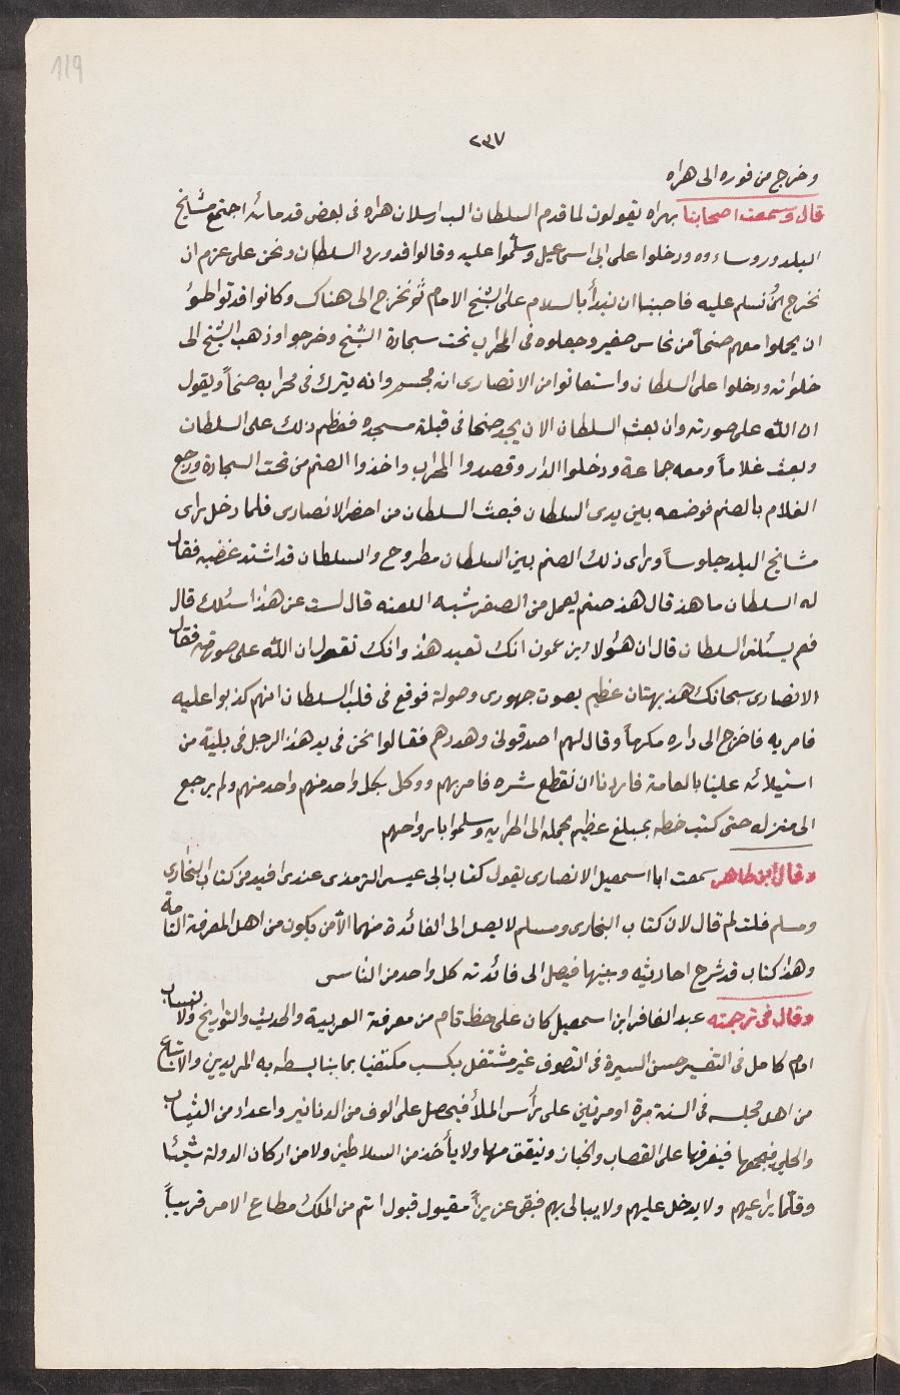 119
٢٣٧
وخرج من فوره الى هراه
قال وسمعت اصحابنا بهراه يقولون لما قدم السلطان الب ارسلان هراه فى بعض قدماته اجتمع مشايخ
البلد وروساءوه ودخلوا على ابى اسمعيل وسلّموا عليه وقالوا قد ورد السلطان ونحن على عزم ان
نخرج نُسلم عليه فاحببنا ان نبدأ بالسلام على الشيخ الامام ثم نخرج الى هناك وكانوا قد تواطئو
ان يحملوا معهم صنماً من نحاس صغير وجعلوه فى المحراب تحت سجادة الشيخ وخرجوا وذهب الشيخ الى
خلواته ودخلوا على السلطان واستغاثوا من الانصارى انه مجسم وانه يترك فى محرابه صنماً ويقول
ان الله على صورته وان بعث السلطان الان يجد صنما فى قبلة مسجده فعظم ذلك على السلطان
وبعث غلاماً ومعه جماعة ودخلوا الدار وقصدوا المحراب واخذوا الصنم من تحت السجادة ورجع
الغلام بالصنم فوضعه بين يدى السلطان فبعث السلطان من احضر الانصارى فلما دخل راى
مشايخ البلد جلوساً وراى ذلك الصنم بين السلطان مطروح والسلطان قد اشتد غضبه فقال
له السلطان ما هذ قال هذ صنم يعمل من الصفر شبه اللعبه قال لست عن هذا اسئلك قال
فعم يسئلنى السلطان قال ان هؤلاء يزعمون انك تعبد هذ وانك تقول ان الله على صورته فقال
الانصارى سبحانك هذ بهتان عظيم بصوت جهورى وصولة فوقع فى قلب السلطان انهم كذبوا عليه
فامر به فاخرج الى داره مكرماً وقال لهم اصدقونى وهددهم فقالوا نحن فى يد هذ الرجل فى بلية من
استيلائه علينا بالعامة فاردنا ان نقطع شره فامر بهم ووكل بكل واحد منهم واحد منهم ولم يرجع
الى منزله حتى كتب خطه بمبلغ عظيم يحمله الى وسلموا بارواحهم
وقال ابن طاهر سمعت ابا اسمعيل الانصارى يقول كتاب ابى عيسى الترمذى عندى افيد من كتاب البخارى
ومسلم قلت لم قال لان كتاب البخارى ومسلم لا يصل الى الفائدة منهما الا من يكون من اهل المعرفة التامة
وهذ كتاب قد شرح احاديثه وبينها فيصل الى فائدته كل واحد من الناس
وقال فى ترجمته عبد الغافر ابن اسمعيل كان على حظ تام من معرفة العربية والحديث والتواريخ والانساب
امام كامل فى التفسير حسن السيرة فى التصوف غير مشتغل بكسب مكتفيا بما يباسطه به المريدين والاتباع
من اهل مجلسه فى السنة مرة او مرتين على رأس الملأ فيحصل على الوف من الدنانير واعداد من الثياب
والحلى فيجمعها فيفرقها على القصاب والخباز وينفق منها ولا يأخذ من السلاطين ولا من اركان الدولة شيئا
وقلّما يراعيهم ولا يدخل عليهم ولا يبالى بهم فبقى عزيزاً مقبول قبول اتم من الملك مطاع الامر قريباً